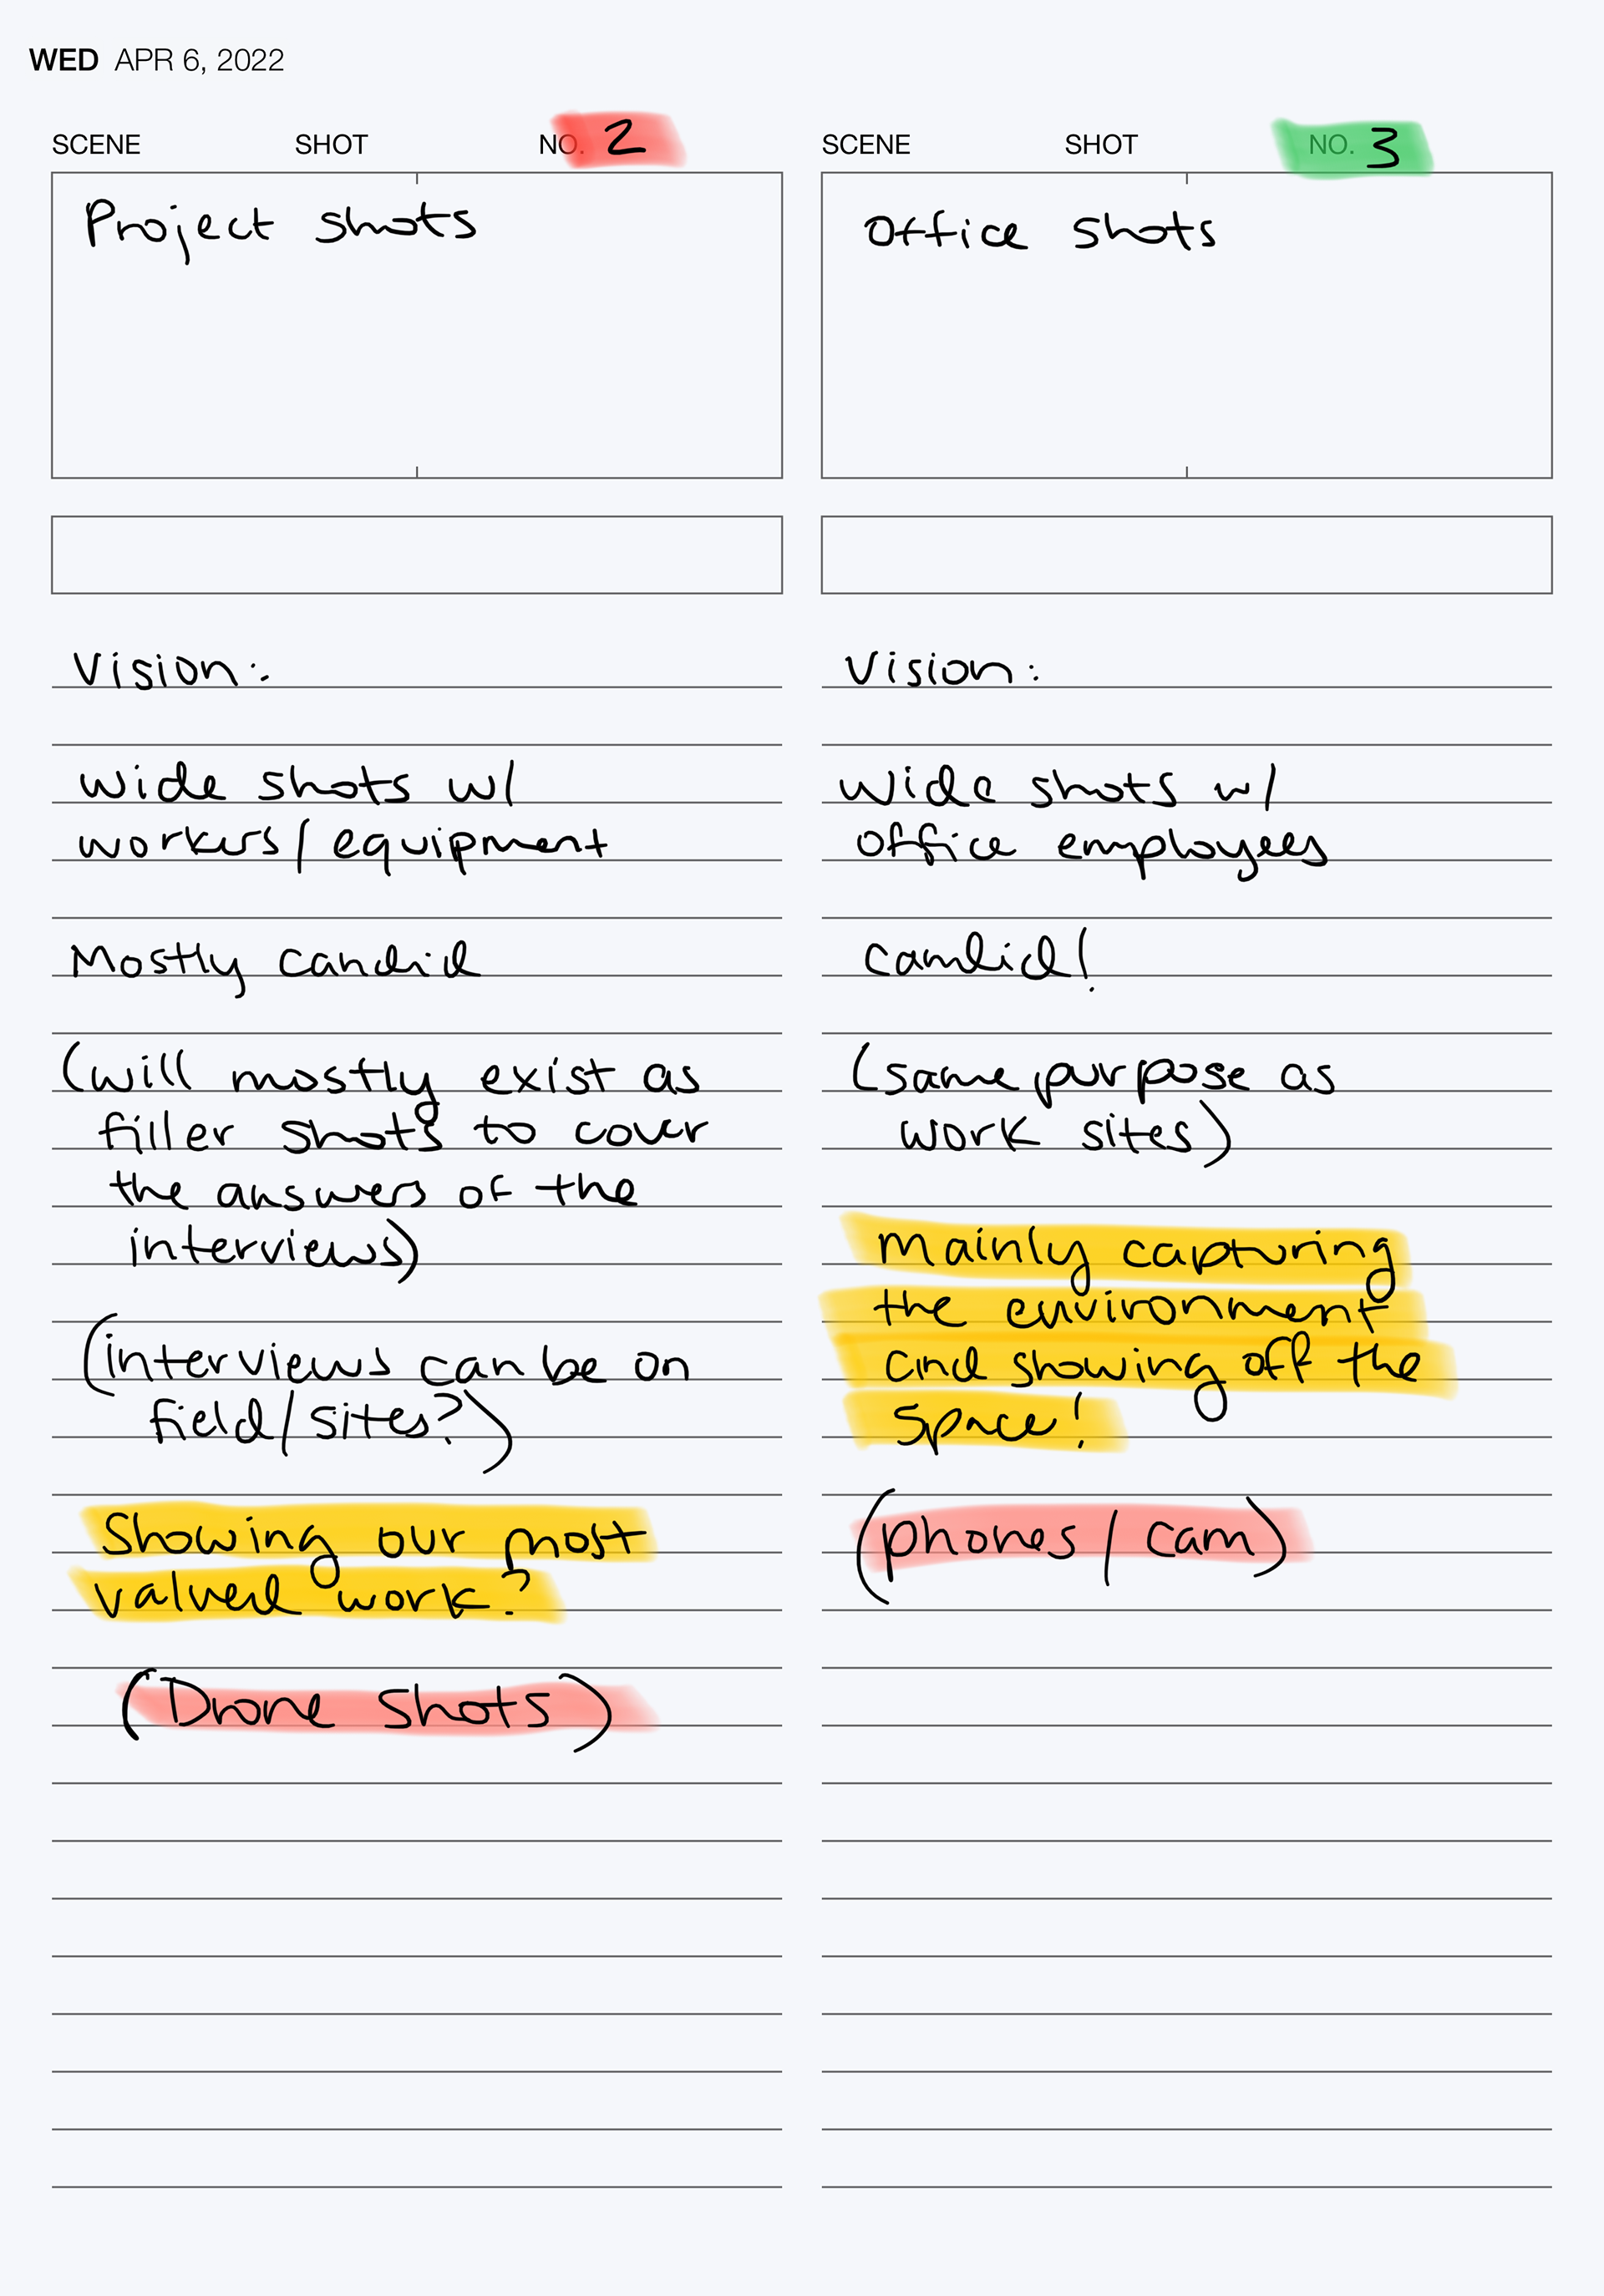 WED APR 6, 2022
SCENE SHOT NO. 2
Project shots
Vision:
wide shots w/
workers/equipment
Mostly candid
(will mostly exist as
filler shots to cover
the answers of the
interviews)
(interviews can be on
field/sites?)
Showing our most
valued work?
(Drone shots)
SCENE SHOT NO. 3
Office shots
Vision:
wide shots w/
office employees
candid!
(same purpose as
work sites)
Mainly capturing
the environment
and showing off the
space!
(phones/cam)